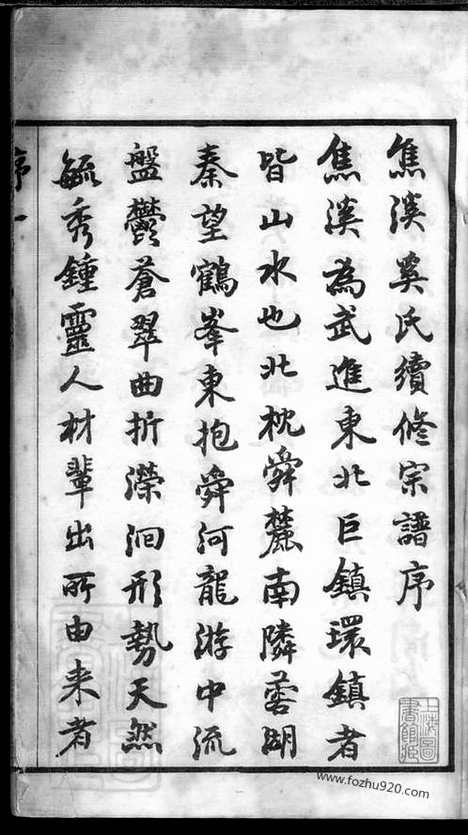 焦溪奚氏續修宗譜序
焦溪為武進東北巨鎮環鎮者
皆山水也北枕舜麓南隣蓉湖
秦望鶴峯東抱舜河龍游中流
盤鬱蒼翠曲折濴洄形勢天然
毓秀鍾靈人材輩出所由来者
序 一
上海圖書館藏
http://www.fozhu920.com/